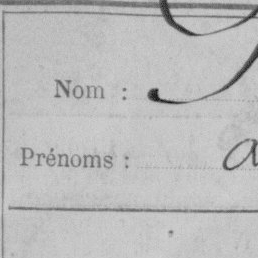 Nom :
Prénoms :